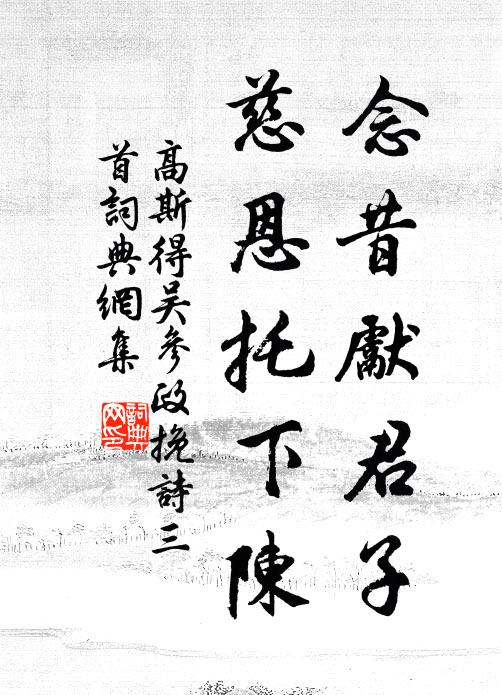 念昔獻君子
慈恩托下陳
高斯得吳參政挽詩三
首詞典網集
詞典
网印